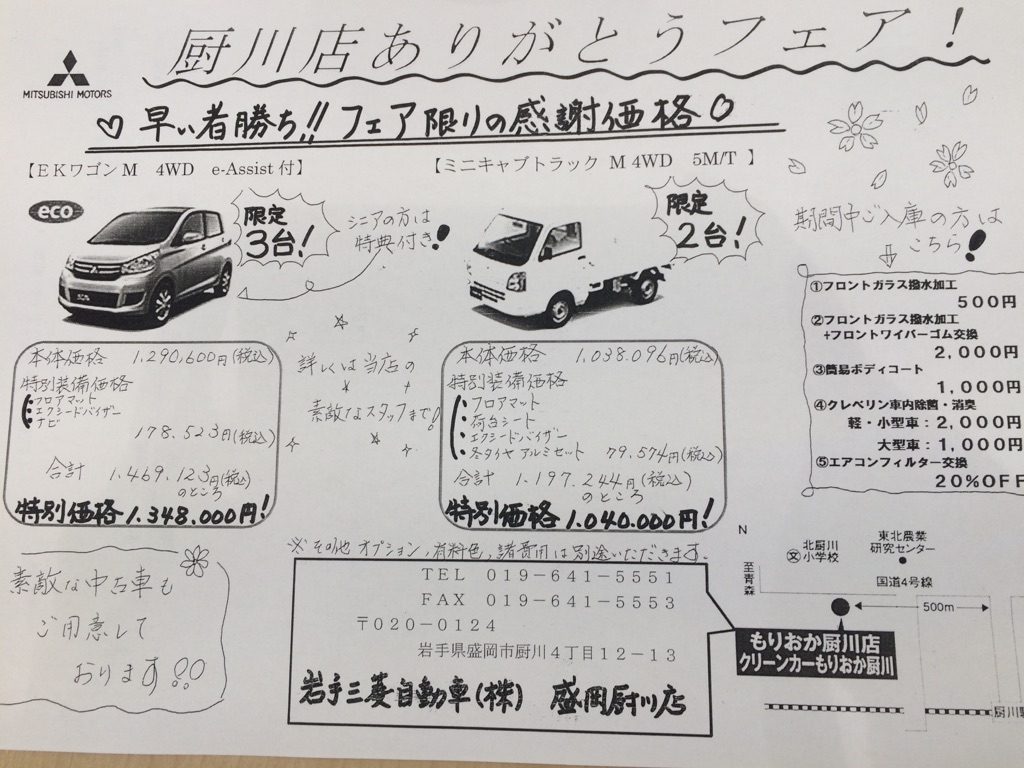 厨川店ありがとうフェア！
MITSUBISHI MOTORS
♡早い者勝ち!!フェア限りの感謝価格♡
【EKワゴンM 4WD e-Assist付】
eco
限定
3台!
シニアの方は
特典付き!
本体価格 1,290,600円(税込)
特別装備価格
フロアマット
エクシードバイザー
ナビ
178,523円(税込)
合計 1,469,123円(税込)
のところ
特別価格1,348,000円!
詳しくは当店の
素敵なスタッフまで!
【ミニキャブトラック M 4WD 5M/T 】
限定
2台!
本体価格 1,038,096円(税込)
特別装備価格
フロアマット
荷台シート
エクシードバイザー
冬タイヤアルミセット 79,574円(税込)
合計 1,197,244円(税込)
のところ
特別価格1,040,000円!
期間中ご入庫の方は
こちら!
①フロントガラス撥水加工
500円
②フロントガラス撥水加工
+フロントワイパーゴム交換
2,000円
③簡易ボディコート
1,000円
④クレベリン車内除菌・消臭
軽・小型車：2,000円
大型車：1,000円
⑤エアコンフィルター交換
20%OFF
素敵な中古車も
ご用意して
おります!!
※その他オプション,有料色,諸費用は別途いただきます。
TEL 019-641-5551
FAX 019-641-5553
〒020-0124
岩手県盛岡市厨川4丁目12-13
岩手三菱自動車(株) 盛岡厨川店
N
至青森
北厨川
小学校
文
東北農業
研究センター
国道4号線
500m
もりおか厨川店
クリーンカーもりおか厨川
厨川